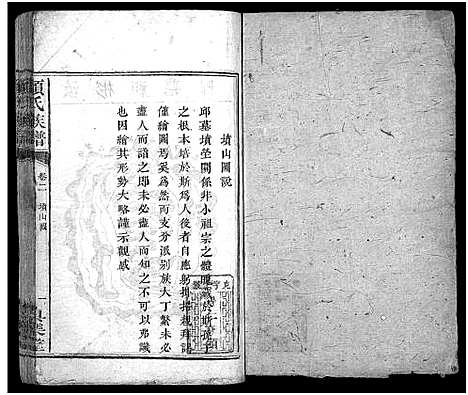 墳山圖說
邱墓墳塋關係非小祖宗之體魄藏於斯孫子
之根本培於斯為人後者自應躬掃親拜認
僅繪圖焉奚為然而支分派別族大丁繁未必
盡人而詣之即未必盡人而知之不可以弗識
也因繪其形勢大略謹示觀感
氏族譜
卷二
墳山圖
一